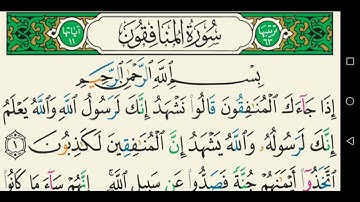 ترتيبها ٦٣ سُورَةُ المُنَافِقُون آياتها ١١
بِسْمِ ٱللَّهِ ٱلرَّحْمَٰنِ ٱلرَّحِيمِ
إِذَا جَآءَكَ ٱلْمُنَٰفِقُونَ قَالُوا۟ نَشْهَدُ إِنَّكَ لَرَسُولُ ٱللَّهِ وَٱللَّهُ يَعْلَمُ
إِنَّكَ لَرَسُولُهُۥ وَٱللَّهُ يَشْهَدُ إِنَّ ٱلْمُنَٰفِقِينَ لَكَٰذِبُونَ ١
ٱتَّخَذُوٓا۟ أَيْمَٰنَهُمْ جُنَّةً فَصَدُّوا۟ عَن سَبِيلِ ٱللَّهِ ۚ إِنَّهُمْ سَآءَ مَا كَانُوا۟